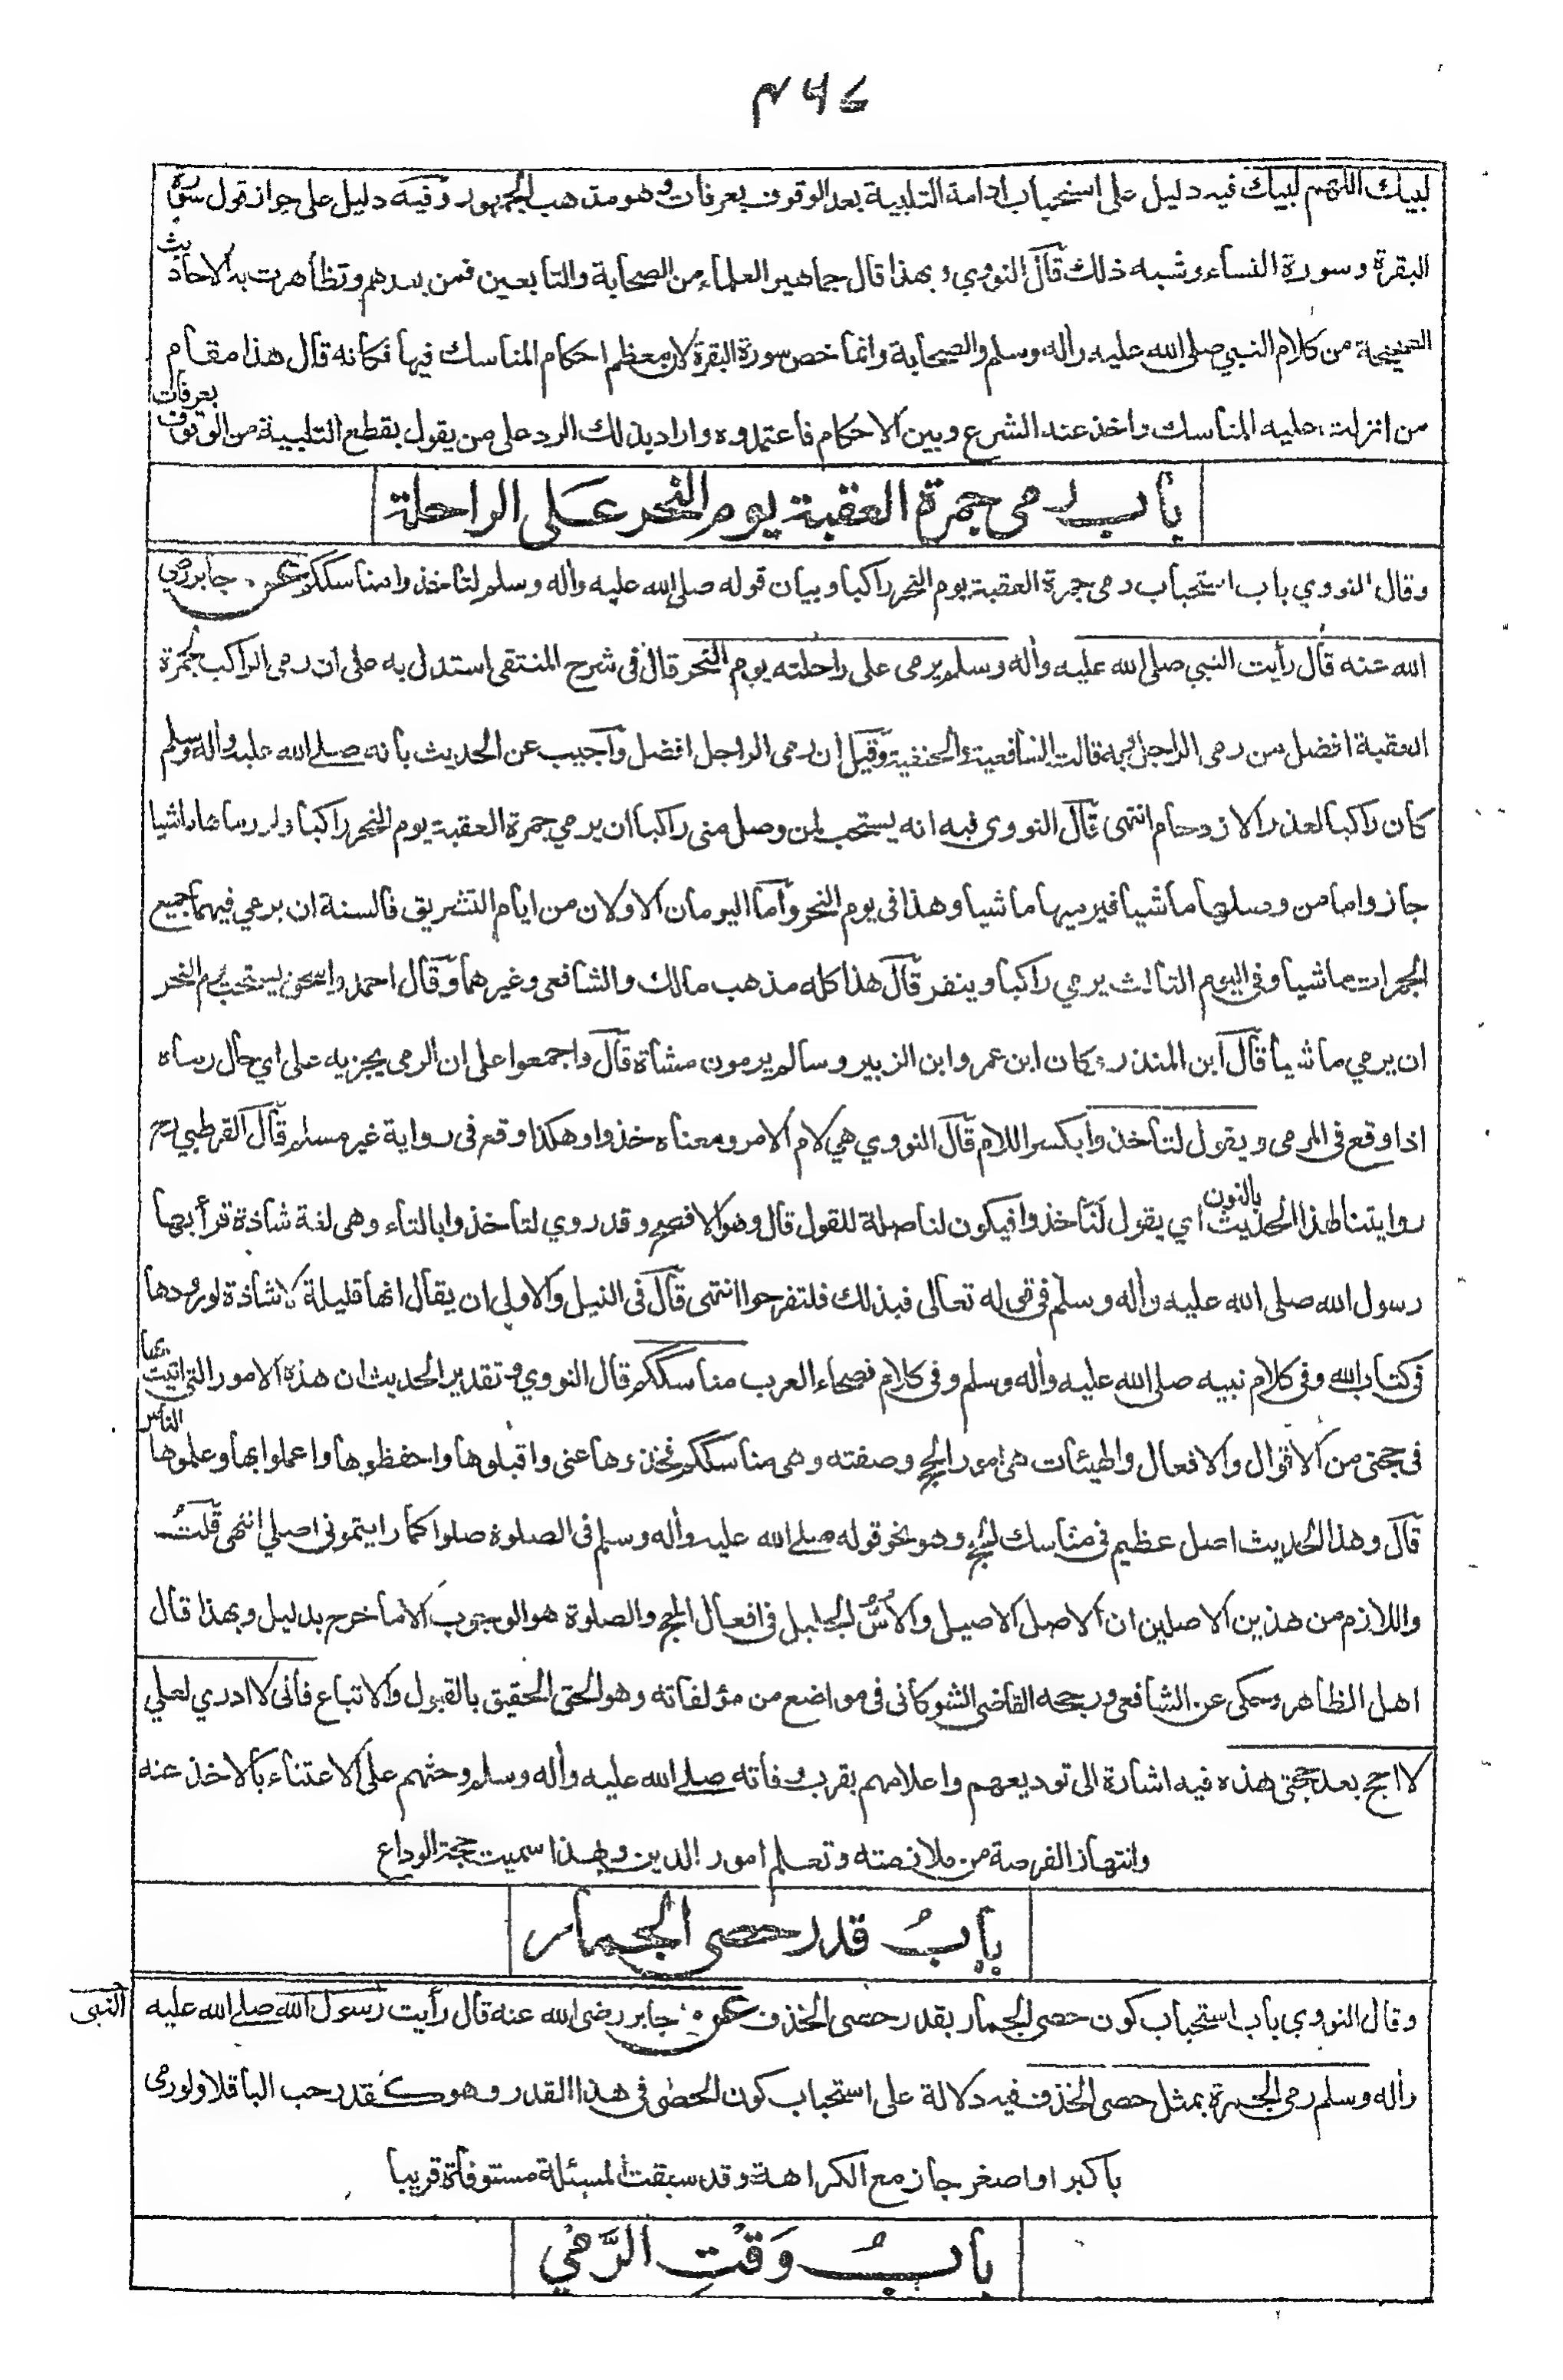 ٤٦٧
لبيك اللهم لبيك فيه دليل على استحباب ادامة التلبية بعد الوقوف بعرفات وهو مذهب الجمهور وفيه دليل على جواز قول سورة
البقرة وسورة النساء وشبه ذلك قال النووي وبهذا قال جماهير العلماء من الصحابة والتابعين فمن بعدهم وتظاهرت به الاحاديث
الصحيحة من كلام النبي صلى الله عليه وأله وسلم والصحابة وانما خص سورة البقرة لان معظم احكام المناسك فيها فكانه قال هذا مقام
من انزلت عليه المناسك واخذ عنه الشرع وبين الاحكام فاعتمدوه واراد بذلك الرد على من يقول بقطع التلبية من الوقوف بعرفات
باب رمى جمرة العقبة يوم النحر على الراحلة
وقال النووي باب استحباب رمى جمرة العقبة يوم النحر راكبا وبيان قوله صلى الله عليه وأله وسلم لتاخذوا مناسككم عن جابر رضي
الله عنه قال رأيت النبي صلى الله عليه وأله وسلم يرمى على راحلته يوم النحر قال فى شرح المنتقى استدل به على ان رمى الراكب جمرة
العقبة افضل من رمى الراجل وبه قالت الشافعية والحنفية وقيل ان رمى الراجل افضل وأجيب عن الحديث بأنه صلى الله عليه وأله وسلم
كان راكبا لعذر الازدحام انتهى قال النووى فيه انه يستحب لمن وصل منى راكبا ان يرمي جمرة العقبة يوم النحر راكبا ولو رماها ماشيا
جاز واما من وصلها ماشيا فيرميها ماشيا وهذا فى يوم النحر وأما اليومان الاولان من ايام التشريق فالسنة ان يرمي فيهما جميع
الجمرات ماشيا وفى اليوم الثالث يرمي راكبا وينفر قال هذا كله مذهب مالك والشافعى وغيرهما وقال احمد واسحق يستحب يوم النحر
ان يرمي ماشيا قال ابن المنذر وكان ابن عمر وابن الزبير وسالم يرمون مشاة قال واجمعوا على ان الرمى يجزيه على اي حال رماه
اذا وقع فى المرمى ويقول لتاخذوا بكسر اللام قال النووي هي لام الامر ومعناه خذوا وهكذا وقع فى رواية غير مسلم قال القرطبي
روايتنا لهذا الحديث بالنون اي يقول لنا خذوا فيكون لنا صلة للقول قال وهو الافصح وقد روي لتاخذوا بالتاء وهى لغة شاذة قرأ بها
رسول الله صلى الله عليه وأله وسلم فى قوله تعالى فبذلك فلتفرحوا انتهى قال فى النيل والاولى ان يقال انها قليلة لا شاذة لورودها
فى كتاب الله وفى كلام نبيه صلى الله عليه وأله وسلم وفى كلام فصحاء العرب مناسككم قال النووي وتقدير الحديث ان هذه الامور التى اتيت بها
فى حجتى من الاقوال والافعال والهيئات هى امور الحج وصفته وهى مناسككم فخذوها عنى واقبلوها واحفظوها واعملوا بها وعلموها الناس
قال وهذا الحديث اصل عظيم فى مناسك الحج وهو نحو قوله صلى الله عليه وأله وسلم فى الصلوة صلوا كما رايتمونى اصلي انتهى قلت
واللازم من هذين الاصلين ان الاصل الاصيل والأسُّ الجليل فى افعال الحج والصلوة هو الوجوب الا ما خرج بدليل وبهذا قال
اهل الظاهر وحكى عن الشافعى ورجحه القاضى الشوكانى فى مواضع من مؤلفاته وهو الحق الحقيق بالقبول والاتباع فأنى لا ادري لعلي
لا احج بعد حجتى هذه فيه اشارة الى توديعهم واعلامهم بقرب وفاته صلى الله عليه وأله وسلم وحثهم على الاعتناء بالاخذ عنه
وانتهاز الفرصة من ملازمته وتعلم امور الدين وبهذا سميت حجة الوداع
بابُ قدر حصى الجمار
وقال النووي باب استحباب كون حصى الجمار بقدر حصى الخذف عن جابر رضى الله عنه قال رأيت رسول الله صلى الله عليه النبى
وأله وسلم رمى الجمرة بمثل حصى الخذف فيه دلالة على استحباب كون الحصى فى هذا القدر وهو كقدر حب الباقلا ولو رمى
باكبر او اصغر جاز مع الكراهة وقد سبقت المسئلة مستوفاة قريبا
بابُ وَقتِ الرَّمْي